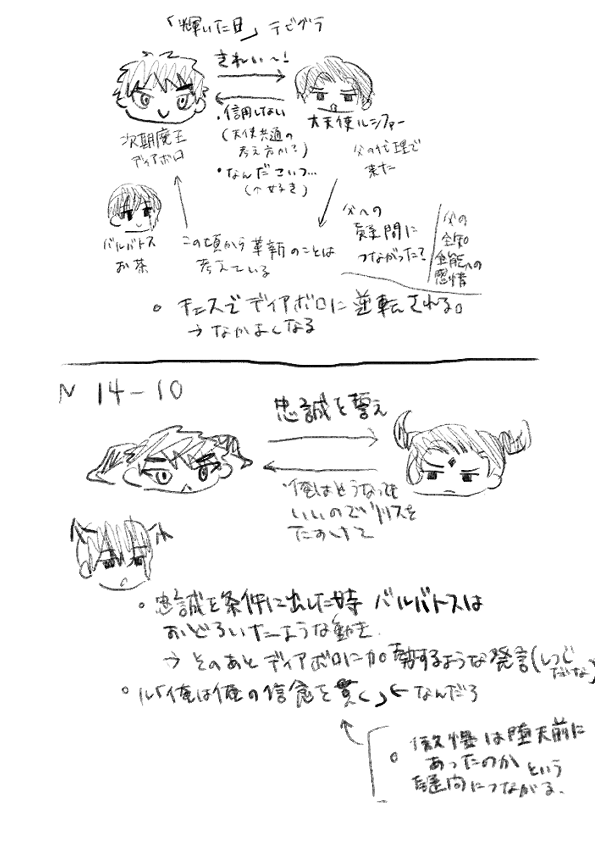 「輝いた日」デビグラ
きれい〜!
・信用しない
(天使共通の
考え方か?)
・なんだこいつ…
(↑好き)
次期魔王
ディアボロ
大天使ルシファー
父の代理で
来た
バルバトス
お茶
この頃から革新のことは
考えている
父への
疑問に
つながった?
父の
全知
全能への
感情
◦ チェスでディアボロに逆転される。
→ なかよくなる
N 14-10
忠誠を誓え
・俺はどうなっても
いいのでリリスを
たすけて
◦ 忠誠を条件に出した時 バルバトスは
おどろいたような動き.
→ そのあとディアボロに加勢するような発言(しつじ
だな)
◦ ル「俺は俺の信念を貫く」← なんだろ
◦ 傲慢は堕天前に
あったのか という
疑問につながる.